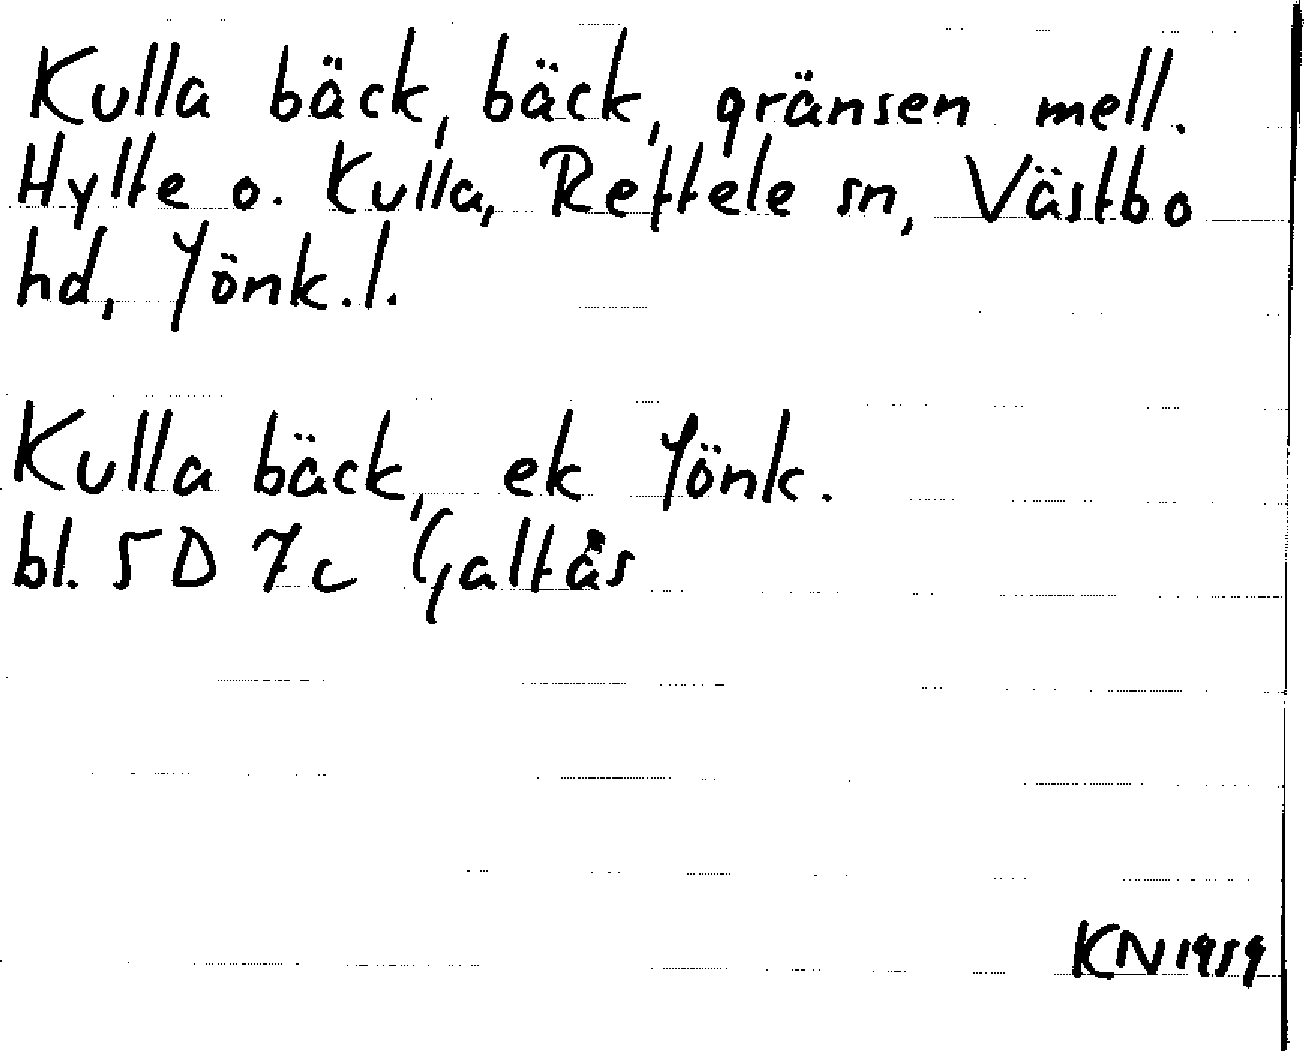 Kulla bäck, bäck, gränsen mell.
Hylte o. Kulla, Reftele sn, Västbo
hd, Jönk.l.
Kulla bäck, ek Jönk.
bl. 5D 7c Galtås
KN 1959